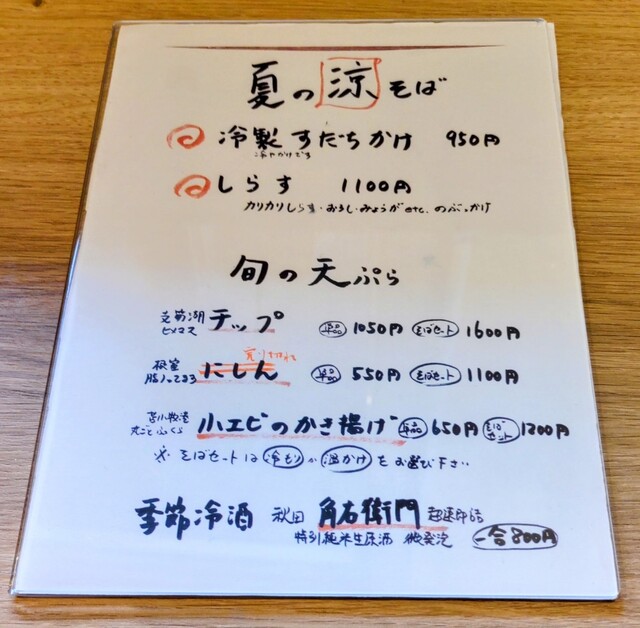 夏の涼そば
冷製すだちかけ 950円
冷やかけです
しらす 1100円
カリカリしらす・おろし・みょうがetc.のぶっかけ
旬の天ぷら
支笏湖 ヒメマス チップ 単品 1050円 そばセット 1600円
売り切れ
根室 脂のってます にしん 単品 550円 そばセット 1100円
苫小牧産 丸ごとふくら 小エビのかき揚げ 単品 650円 そばセット 1200円
※そばセットは冷もりか温かけをお選び下さい
季節冷酒 秋田 角右衛門
特別純米生原酒 微発泡 一合800円